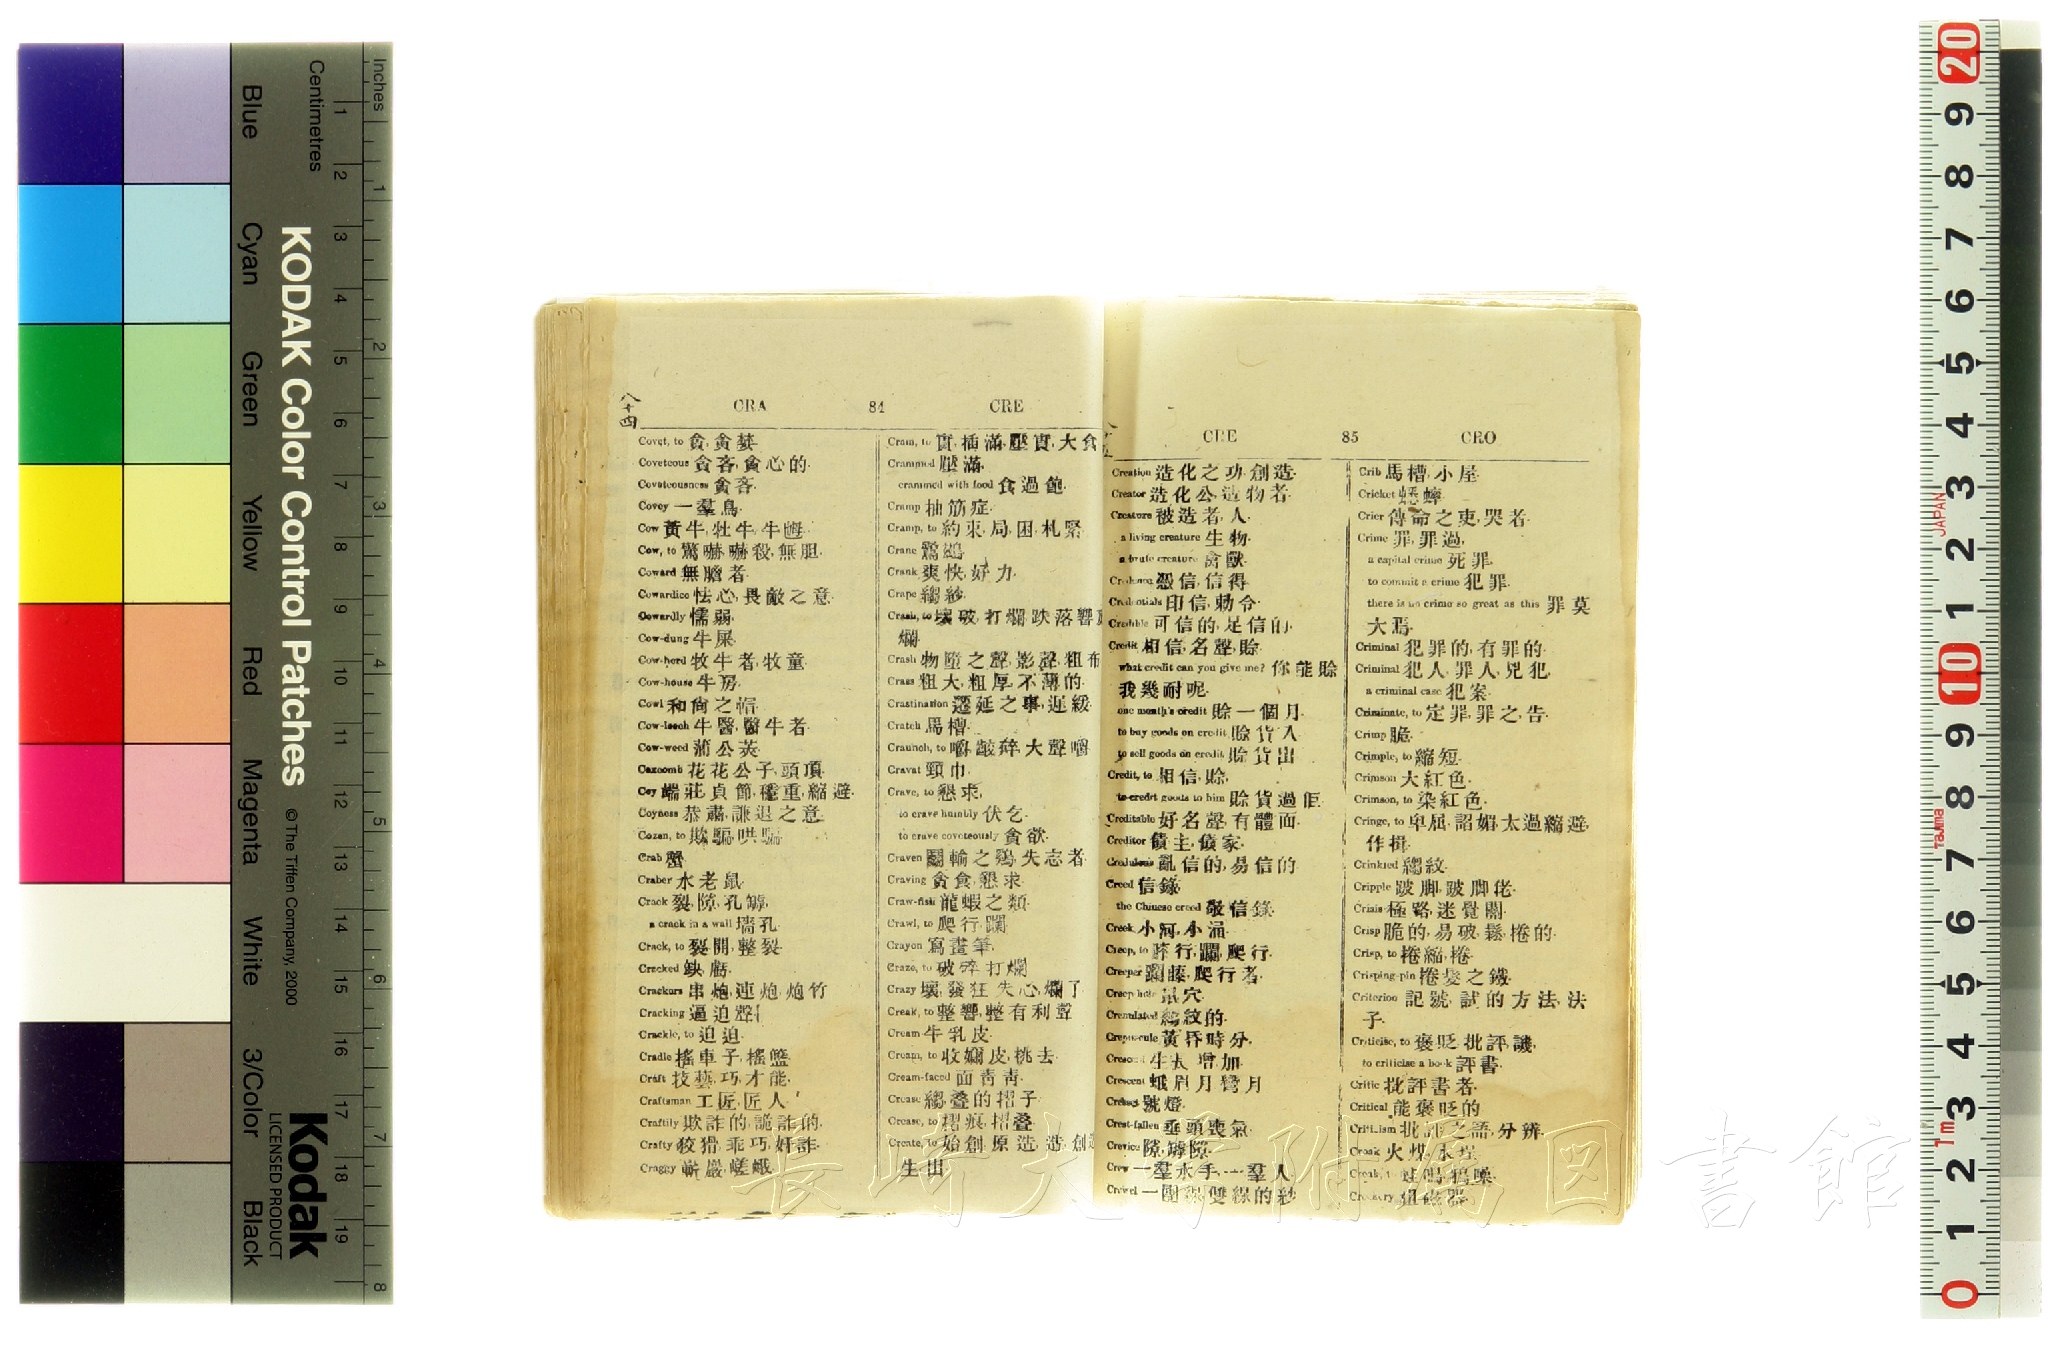 Inches
Centimetres
1 2 3 4 5 6 7 8
1 2 3 4 5 6 7 8 9 10 11 12 13 14 15 16 17 18 19
Blue
Cyan
Green
Yellow
Red
Magenta
White
3/Color
Black
KODAK Color Control Patches
© The Tiffen Company, 2000
Kodak
LICENSED PRODUCT
八十四
CRA 84 CRE
Covet, to 貪, 貪婪
Coveteous 貪吝, 貪心的
Coveteousness 貪吝
Covey 一羣鳥
Cow 黃牛, 牡牛, 牛
Cow, to 驚嚇, 嚇殺, 無胆
Coward 無膽者
Cowardice 怯心, 畏敵之意
Cowardly 懦弱
Cow-dung 牛屎
Cow-herd 牧牛者, 牧童
Cow-house 牛房
Cowl 和尙之帽
Cow-leech 牛醫, 醫牛者
Cow-weed 蒲公英
Coxcomb 花花公子, 頭頂
Coy 端莊, 貞節, 穩重, 縮避
Coyness 恭肅, 謙退之意
Cozen, to 欺騙, 哄騙
Crab 蟹
Craber 水老鼠
Crack 裂, 隙, 孔罅
a crack in a wall 墻孔
Crack, to 裂開, 整裂
Cracked 缺, 虧
Crackers 串炮, 連炮, 炮竹
Cracking 逼迫聲
Crackle, to 迫迫
Cradle 搖車子, 搖籃
Craft 技藝, 巧, 才能
Craftsman 工匠, 匠人
Craftily 欺詐的, 詭詐的
Crafty 狡猾, 乖巧, 奸詐
Craggy 嶄巖, 嵯峨
Cram, to 實, 插滿, 壓實, 大食
Crammed 壓滿
crammed with food 食過飽
Cramp 抽筋症
Cramp, to 約束, 局, 困, 札緊
Crane
Crank 爽快, 好力
Crape 縐紗
Crash, to 壞破, 打爛, 跌落響
爛
Crash 物墮之聲, 影聲, 粗布
Crass 粗大, 粗厚, 不薄的
Crastination 遷延之事, 遲緩
Cratch 馬槽
Craunch, to
Cravat 頸巾
Crave, to 懇求
to crave humbly 伏乞
to crave coveteously 貪欲
Craven 鬭輸之鷄, 失志者
Craving 貪食, 懇求
Craw-fish 龍蝦之類
Crawl, to 爬行, 躝
Crayon 寫畫筆
Craze, to 破碎, 打爛
Crazy 壞, 發狂, 失心, 爛了
Creak, to 整響, 整有利聲
Cream 牛乳皮
Cream, to 收奶皮, 桃去
Cream-faced 面靑靑
Crease 縐, 叠的摺子
Crease, to 摺痕, 摺叠
Create, to 始創, 原造, 造, 創造
生出
CRE 85 CRO
Creation 造化之功, 創造
Creator 造化公, 造物者
Creature 被造者, 人
a living creature 生物
a brute creature 禽獸
Credence 憑信, 信得
Credentials 印信, 勅令
Credible 可信的, 足信的
Credit 相信, 名聲, 賒
what credit can you give me? 你能賒
我幾耐呢
one month's credit 賒一個月
to buy goods on credit 賒貨入
to sell goods on credit 賒貨出
Credit, to 相信, 賒
to credit goods to him 賒貨過佢
Creditable 好名聲, 有體面
Creditor 債主, 債家
Credulous 亂信的, 易信的
Creed 信錄
the Chinese creed 敬信錄
Creek 小河, 小涌
Creep, to 行, 躝, 爬行
Creeper 躝藤, 爬行者
Creep-hole 鼠穴
Crenulated 縐紋的
Crepuscule 黃昏時分
Crescent 生太, 增加
Crescent 蛾眉月, 彎月
Cresset 號燈
Crest-fallen 垂頭喪氣
Crevice 隙, 罅隙
Crew 一羣水手, 一羣人
Crewel
Crib 馬槽, 小屋
Cricket 蟋蟀
Crier 傳命之吏, 哭者
Crime 罪, 罪過
a capital crime 死罪
to commit a crime 犯罪
there is no crime so great as this 罪莫
大焉
Criminal 犯罪的, 有罪的
Criminal 犯人, 罪人, 兇犯
a criminal case 犯案
Criminate, to 定罪, 罪之, 告
Crimp 脆
Crimple, to 縮短
Crimson 大紅色
Crimson, to 染紅色
Cringe, to 卑屈, 諂媚, 太過縮避
作揖
Crinkled 縐紋
Cripple 跛脚, 跛脚佬
Crisis 極路, 迷覺關
Crisp 脆的, 易破, 鬆, 捲的
Crisp, to 捲縮, 捲
Crisping-pin 捲髮之鐵
Criterion 記號, 試的方法, 法
子
Criticise, to 褒貶, 批評, 譏
to criticise a book 評書
Critic 批評書者
Critical 能褒貶的
Criticism 批評之語, 分辨
Croak 火煤, 水埕
Croak, to
Crockery 缸磁器
長崎大学附属図書館
JAPAN
Tajima
1m
0 1 2 3 4 5 6 7 8 9 10 1 2 3 4 5 6 7 8 9 20